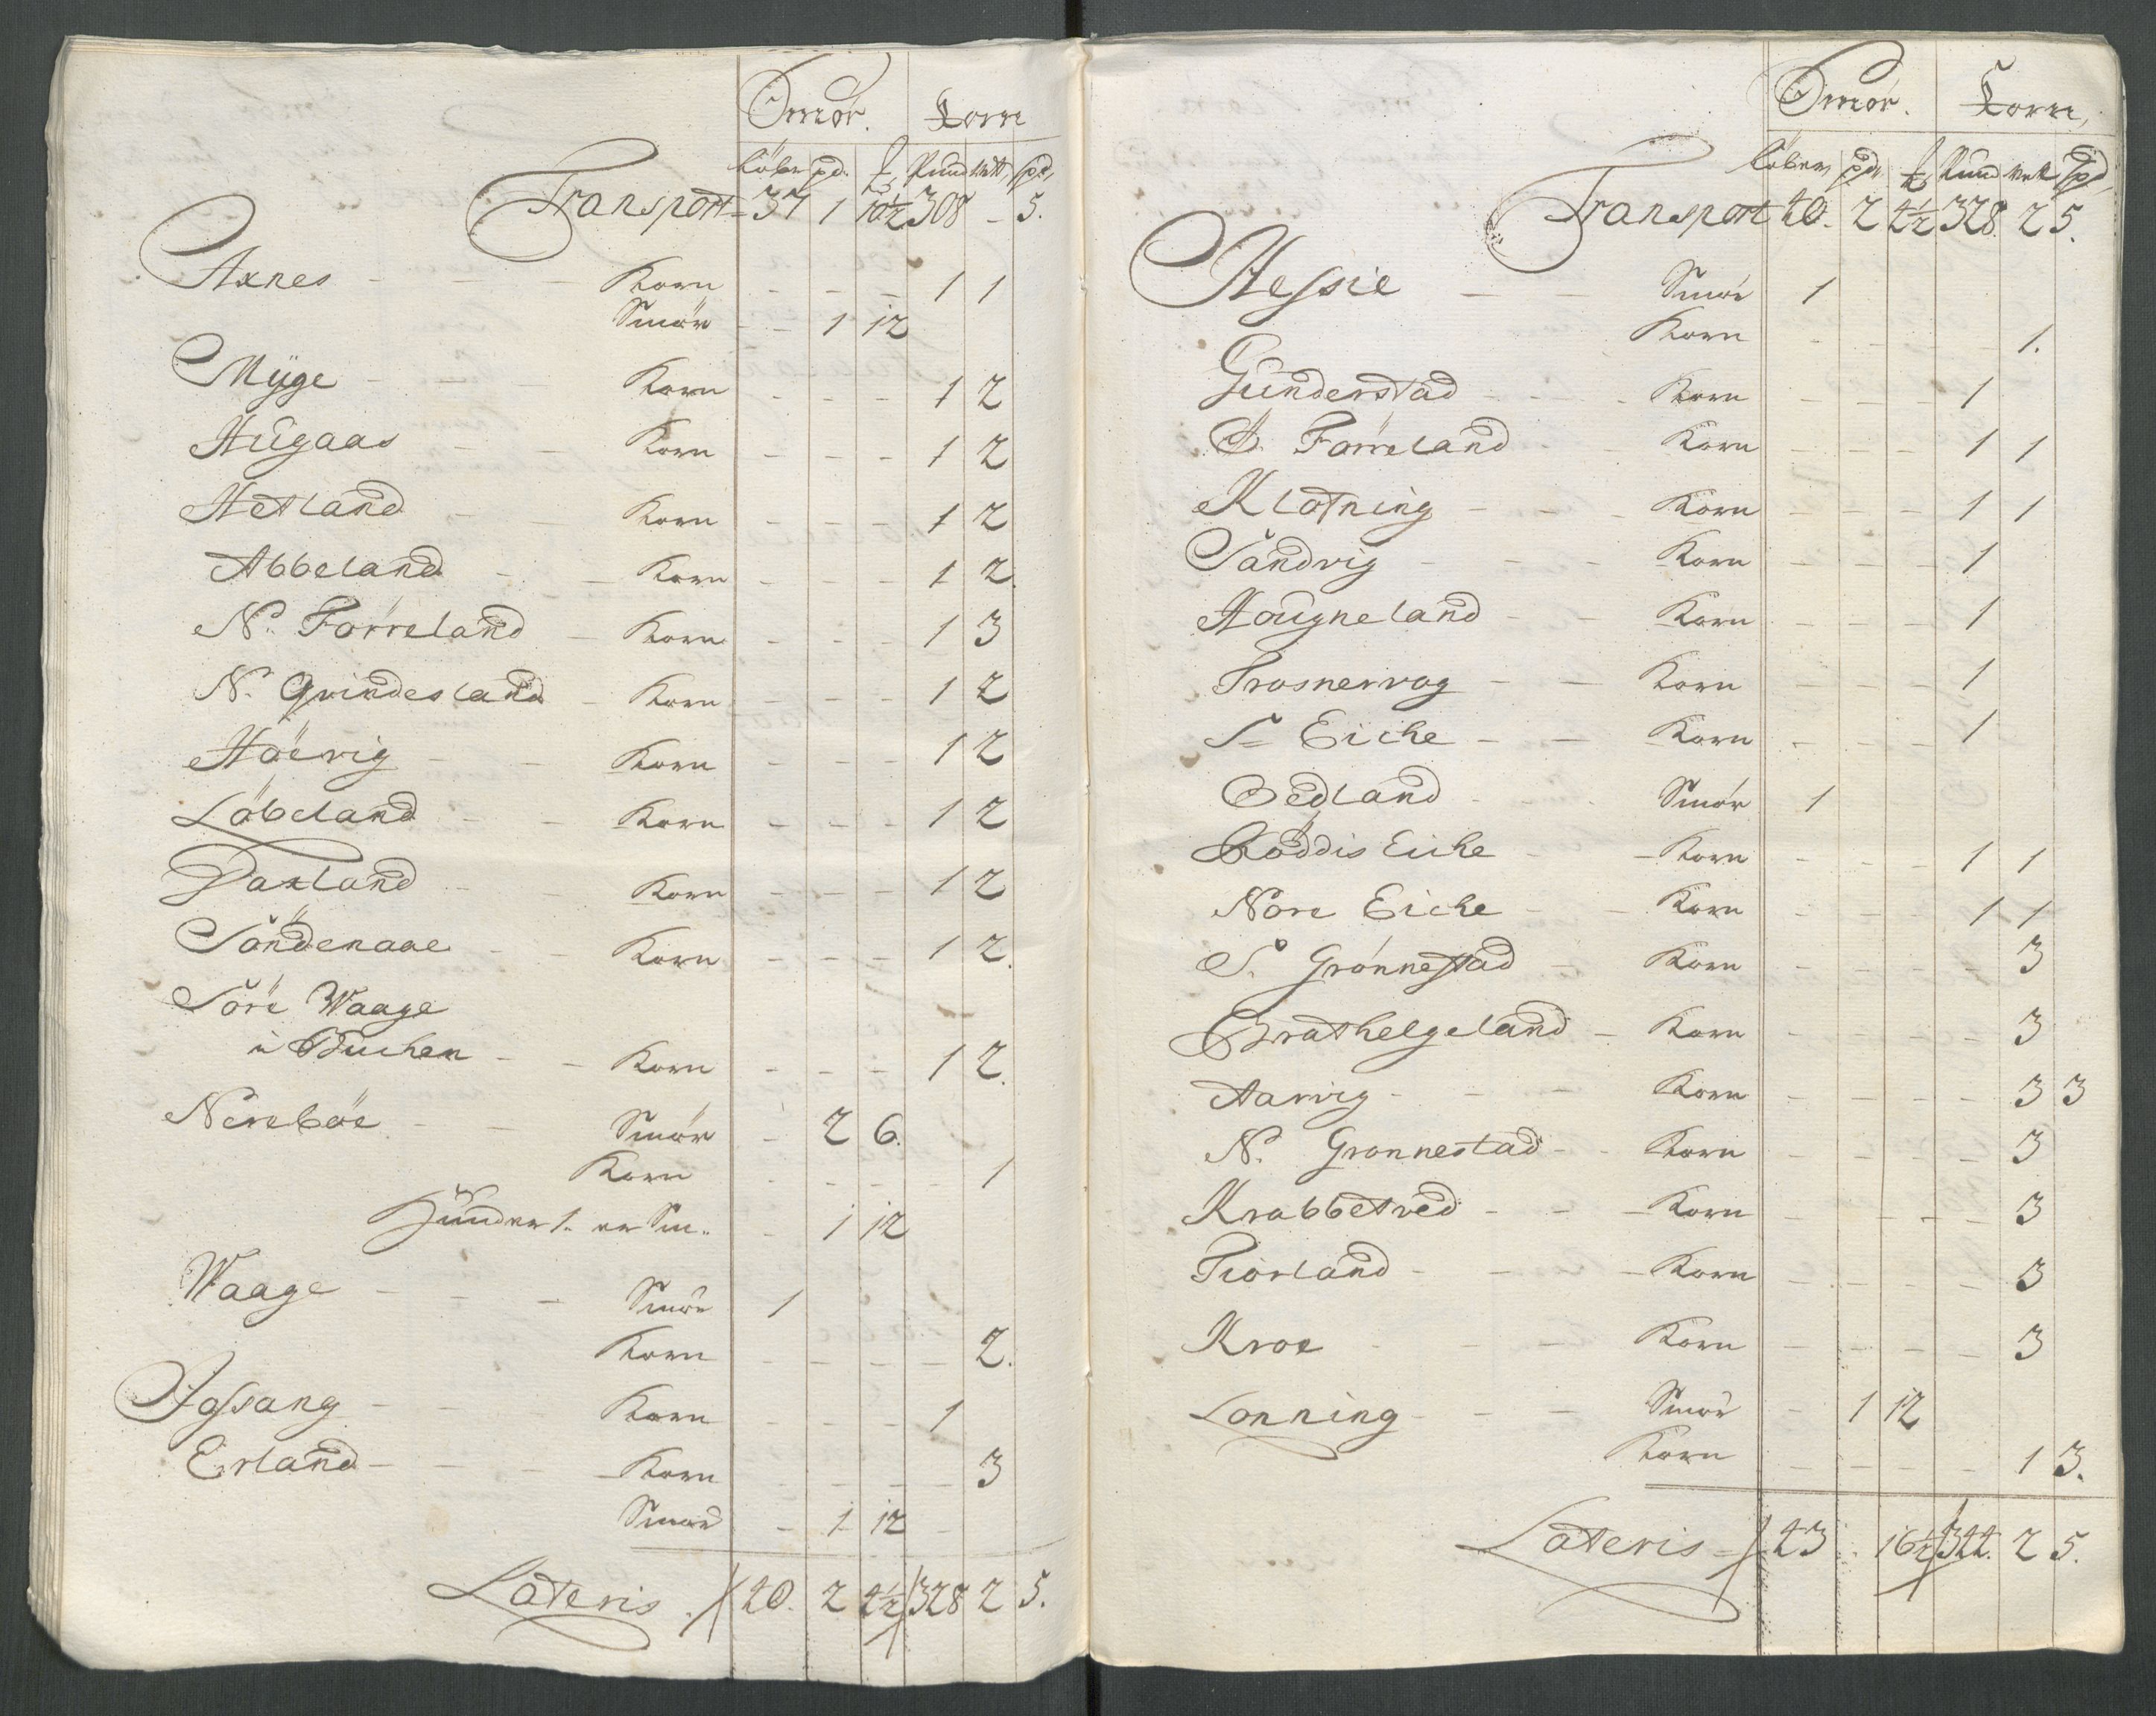 Smör. Korn
Löber pd. ℔ Pund Vett, spd,
Transport 37 1 10½ 308 - 5.
Axnes - - - Korn - - - 1 1
Smör - - 1 12
Myge - - Korn - - - 1 2
Hügaas - - Korn - - - 1 2
Hetland - - Korn - - - 1 2
Abbeland - - Korn - - - 1 2.
N. Förreland - Korn - - - 1 3
N. Qvindesland - Korn - - - 1 2
Höevig - - Korn - - - 1 2
Löbeland - - Korn - - - 1 2
Daxland - - Korn - - - 1 2
Söndenaae - - Korn - - - 1 2.
Söre Waage
i Buchen - - Korn - - - 1 2.
Nereböe - - Smör - 2 6.
Korn - - - - 1
Hünder 1. er Sm.. - 1 12
Waage - - - Smör 1
Korn - - - - 2.
Aossang - - Korn - - - 1
Erland - - - Korn - - - - 3
Smör - 1 12 -
Lateris 40. 2 4½ 328 2 5.
Smör. Korn,
Löber, pd. ℔ Pund Vet spd,
Transport 40. 2 4½ 328. 2 5.
Hessie - - Smör 1
Korn - - - - 1.
Gunderstad - - - Korn - - - 1
S. Förreland - - Korn - - - 1 1
Klötning - - - Korn - - - 1 1
Sandvig - - - Korn - - - 1
Hougneland - - Korn - - - 1
Trosnervog - - Korn - - - 1
S= Eiche - - Korn - - - 1
Oedland - - Smör 1
Röddis Eiche - - Korn - - - 1 1
Nore Eiche - - Korn - - 1 1
S. Grönnestad - Korn - - - - 3
Brathelgeland - Korn - - - - 3
Aarvig - - - Korn - - - - 3 3
N. Gronnestad - - Korn - - - - 3
Krabbetved - - - Korn - - - - 3
Tiorland - - - Korn - - - - 3
Kroe - - - Korn - - - - 3
Lonning - - - Smör - 1 12
Korn - - - - - 1 3.
Lateris 43 . 16½ 344. 2 5.